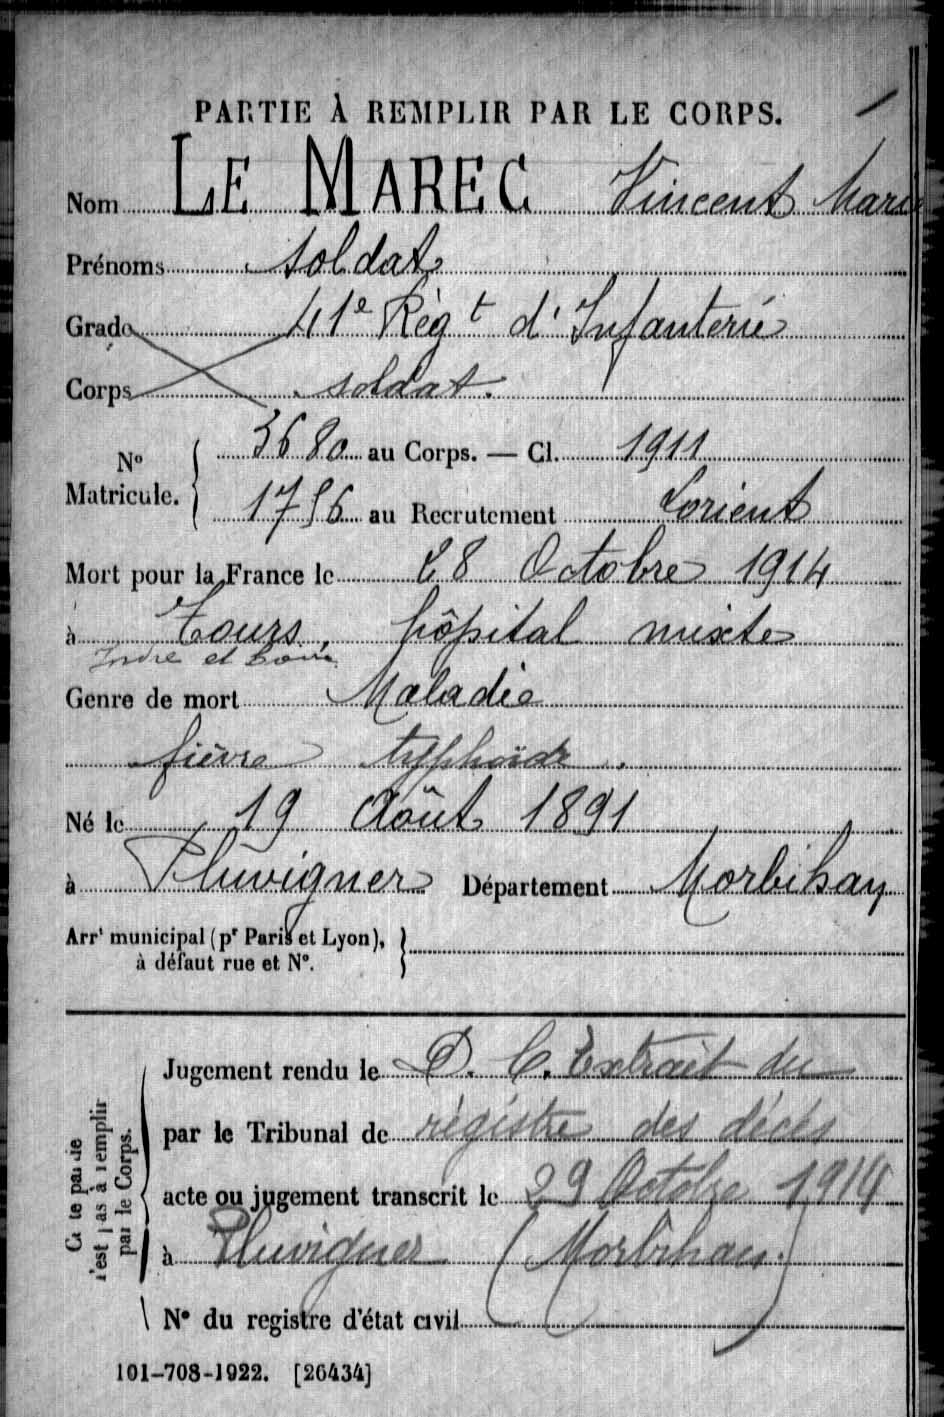 PARTIE À REMPLIR PAR LE CORPS.
Nom LE MAREC Vincent Marie
Prénoms soldat
Grade 41e Règt d'Infanterie
Corps soldat.
No Matricule. 3680 au Corps. — Cl. 1911
1756 au Recrutement Lorient
Mort pour la France le 28 Octobre 1914
à Tours, hôpital mixte
Indre et Loire
Genre de mort Maladie
fièvre typhoïde.
Né le 19 Août 1891
à Pluvigner Département Morbihan
Arrt municipal (pr Paris et Lyon),
à défaut rue et No.
Jugement rendu le D. C. Extrait du
par le Tribunal de régistre des décès
acte ou jugement transcrit le 29 Octobre 1914
à Pluvigner (Morbihan.)
No du registre d'état civil
Cette partie
n'est pas à remplir
par le Corps.
101-708-1922. [26434]